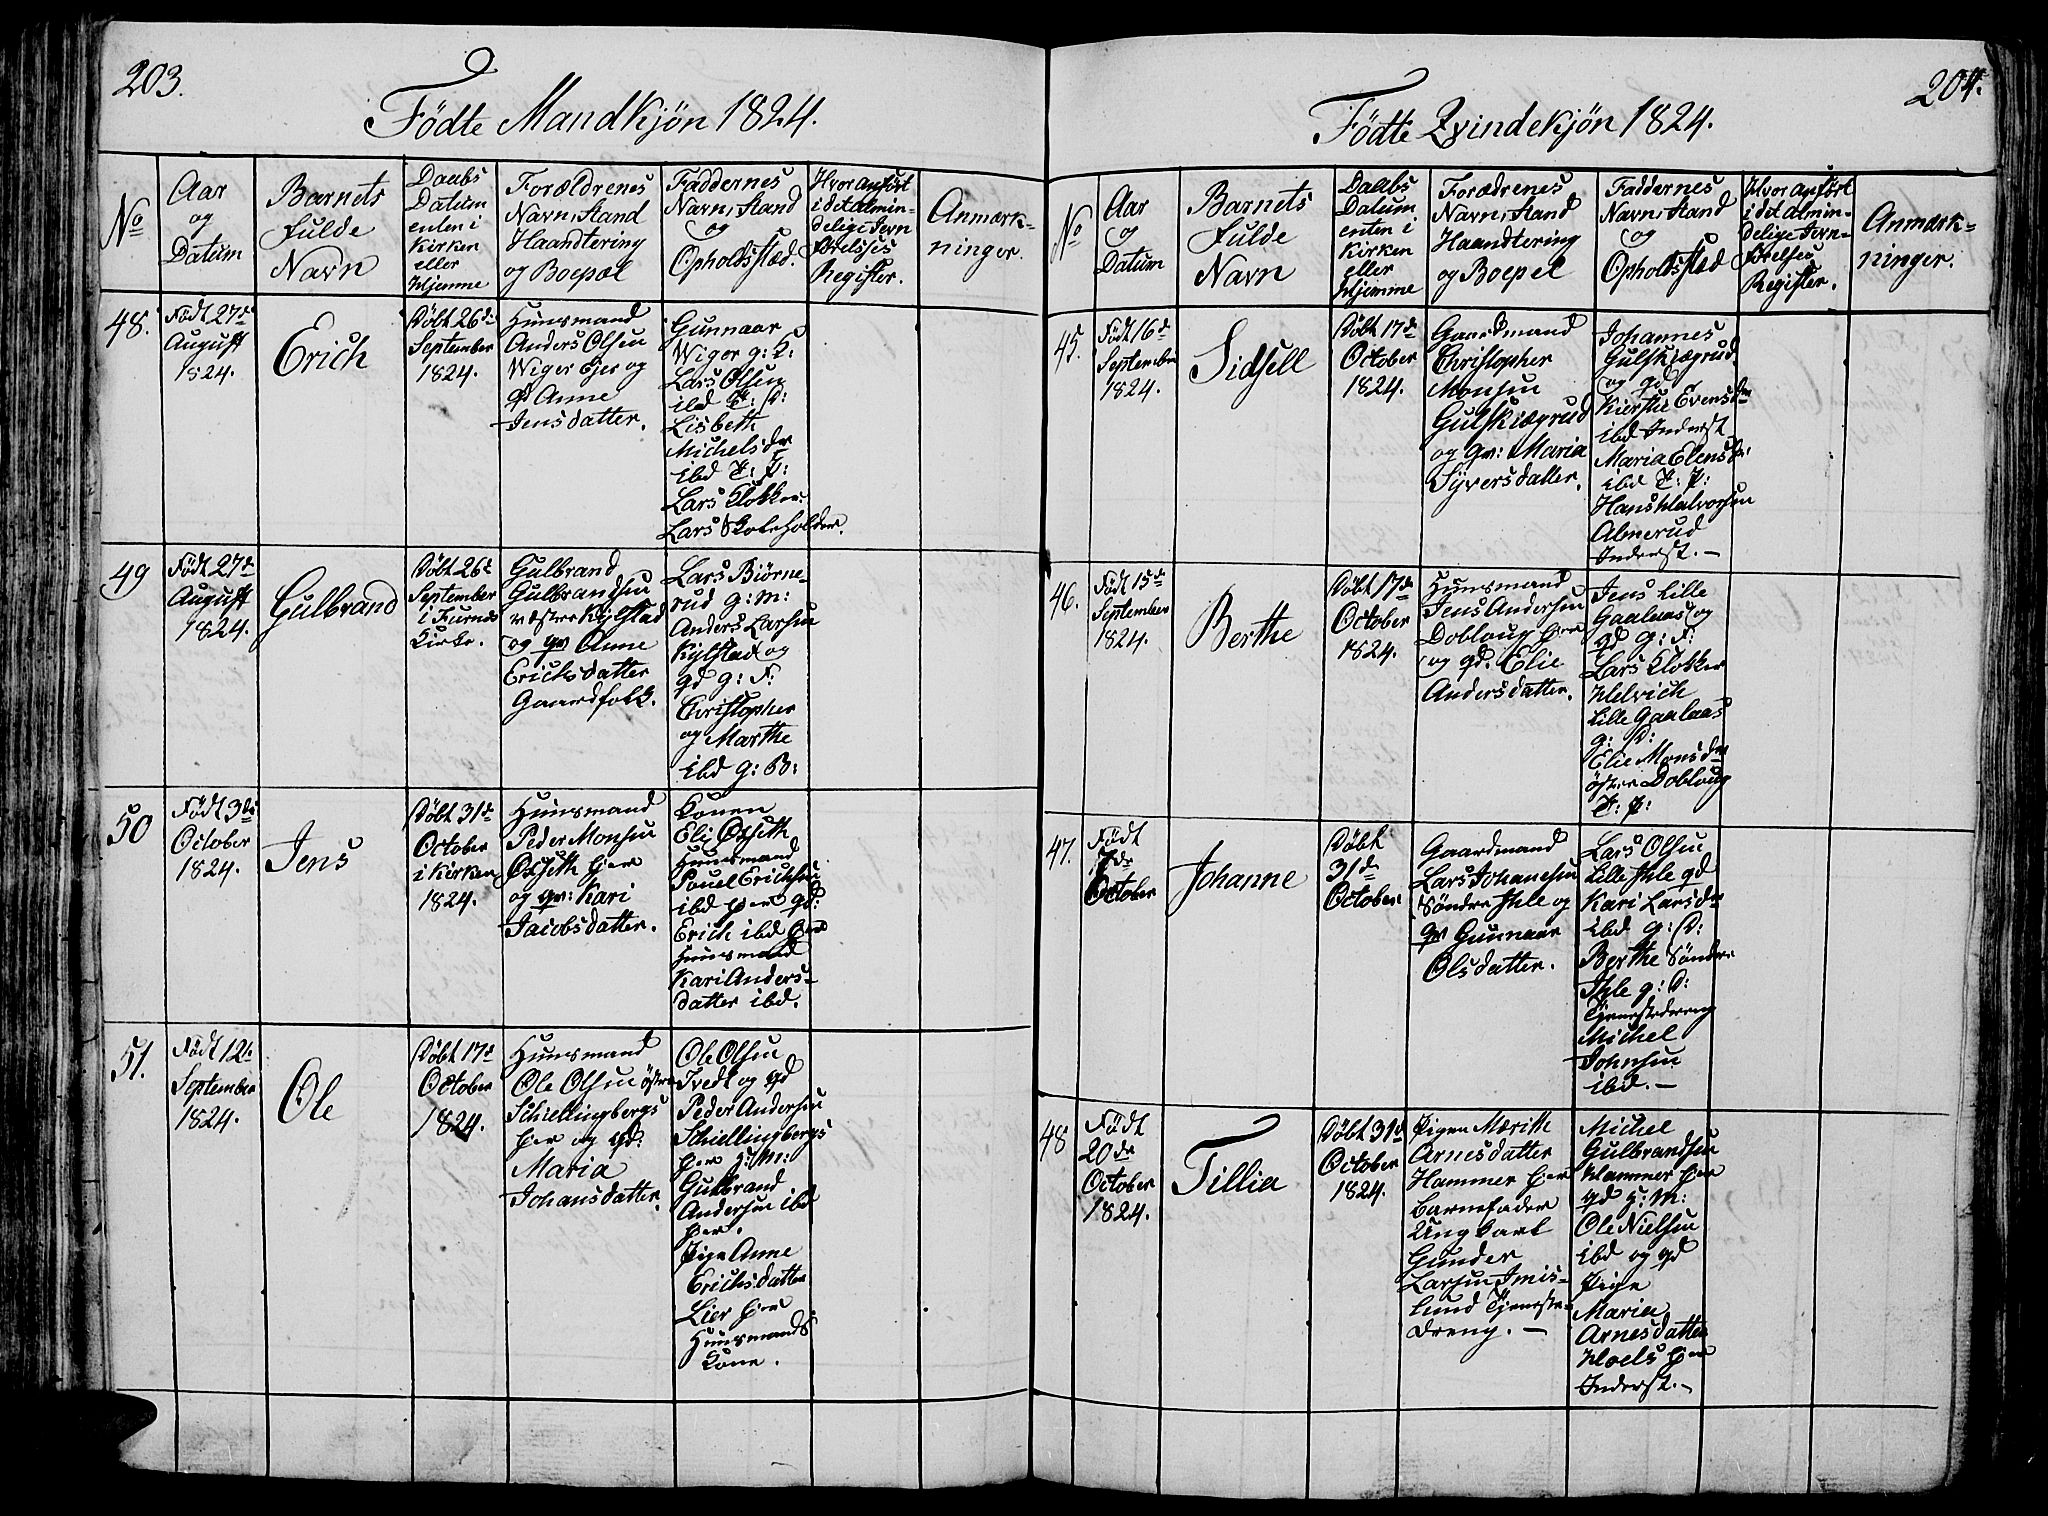 203.
Födte Mandkjön 1824.
No
Aar
og
Datum
Barnets
fulde
Navn
Daabs
Datum
enten i
Kirken
eller
Hjemme
Forældrenes
Navn, Stand
Haandtering
og Boepæl
Faddernes
Navn, Stand
og
Opholdsstæd.
Hvor anført
i det almin-
delige Jevn-
førelses
Register.
Anmærk-
ninger.
48.
Født 27de
August
1824.
Erich
Døbt 26de
September
1824.
Huusmand
Anders Olsen
Wiger Ejer og
qd Anne
Jensdatter.
Gunnaar
Wiger g: K:
Lars Olsen
ibd
Lisbeth
Michelsdr
ibd T: P:
Lars Klokker
Lars Skoleholder.
49
Født 27de
August
1824.
Gulbrand
Døbt 26de
September
i Furnes
Kirke.
Gulbrand
Gulbrandsen
vestre Kylstad
og qv Anne
Erichsdatter
Gaardfolk.
Lars Biørne-
rud g: M:
Anders Larsen
Kylstad og
qd g: F:
Christopher
og Marthe
ibd g: B:
50
Født 3de
October
1824.
Jens
Døbt 31de
October
i Kirken
1824.
Huusmand
Peder Monsen
og qv: Kari
Jacobsdatter.
Konen
Eli
Huusmand
Pouel Erichsen
ibd Ejer qd:
Erich ibd Ejer
Huusmand
Kari Anders-
datter ibd.
51.
Født 12te
September
1824.
Ole
Døbt 17de
October
1824.
Huusmand
Ole Olsen østre
Schiellingbergs
Ejer og qd:
Maria
Johansdatter.
Ole Olsen
Tvedt og qd
Peder Andersen
Schiellingbergs
Ejer H: M:
Gulbrand
Andersen ibd
Ejer.
Pige Anne
Erichsdatter
Lier Ejer
Huusmands
Kone.
204.
Födte Qvindekjön 1824.
No
Aar
og
Datum
Barnets
fulde
Navn
Daabs
Datum
enten i
Kirken
eller
Hjemme
Forædrenes
Navn, Stand
Haandtering
og Boepel
Faddernes
Navn, Stand
og
Opholdsstæd
Hvor anført
i det almin-
delige Jevn-
førelses
Register.
Anmærk-
ninger.
45.
Født 16de
September
1824.
Sidsell
Døbt 17de
October
1824.
Gaardmand
Christopher
Monsen
Gulskiægrud
og qv: Maria
Syversdatter.
Johannes
Gulskiægrud
og qd
Kirstie Evensdr
ibd Inderst
Maria Elensdr:
ibd T: P:
Hans Halvorsen
Almerud
Inderst. —
46.
Født 15de
September
1824.
Berthe
Døbt 17de
October
1824.
Huusmand
Jens Andersen
Dobloug Ejer
og qd. Elie
Andersdatter.
Jens Lille
Gaalaas og
qd g: F:
Lars Klokker
Helvich
Lille Gaalaas
g: D:
Elie Monsdr
østre Dobloug
T: P:
47.
Født
7de
October
Johanne
Døbt
31de
October
Gaardmand
Lars Johanesen
Søndre Ihle og
qv Gunnaar
Olsdatter.
Lars Olsen
Lille Ihle qd
Kari Larsdr
ibd g: D:
Berthe Søndre
Ihle g: D:
Tjenestedreng
Michel
Johnsen
ibd. —
48
Født
20de
October
1824.
Tillia
Døbt 31de
October
1824.
Pigen Marith
Arnesdatter
Hammer Ejer
Barnefader
Ung Karl
Gunder
Larsen Imis-
lund Tjeneste-
dreng. —
Michel
Gulbrandsen
Hammer Ejer
qd H: M:
Ole Nielsen
ibd og qd
Pige
Maria
Arnesdatter
Hoels Ejer
Inderst. —